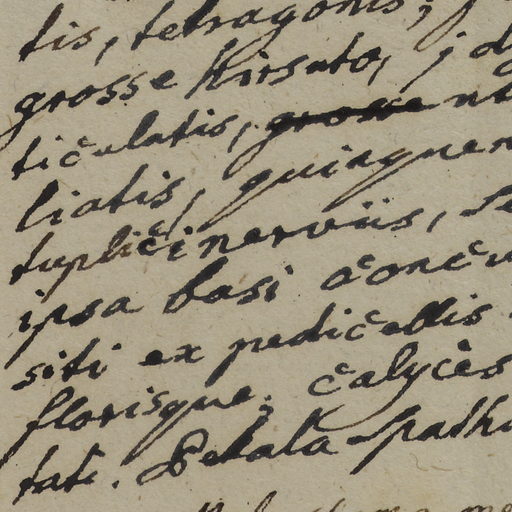 tis, tetragonis;
grosse hirsuto, j
ticulatis, grosse
liatis, quinquener
tuplicinerviis,
ipsa basi concu
siti ex pedicellis
florisque; calyces
tati. Petala spathu